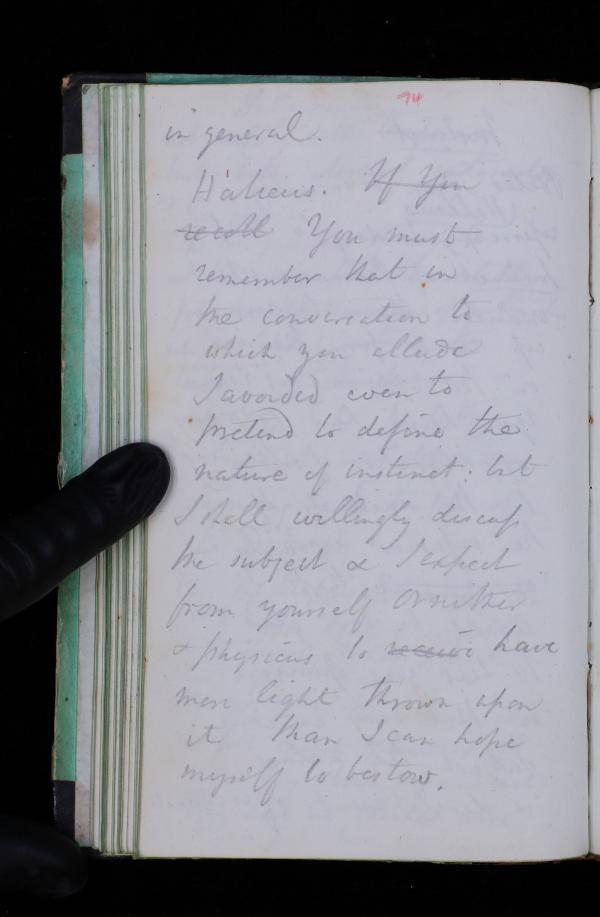 94
in general.
Halieus. If You
recoll You must
remember that in
the conversation to
which you allude
I avoided even to
pretend to define the
nature of instinct: but
I shall willingly discuss
the subject & I expect
from yourself Ornither
& physicus to receive have
more light thrown upon
it than I can hope
myself to bestow.